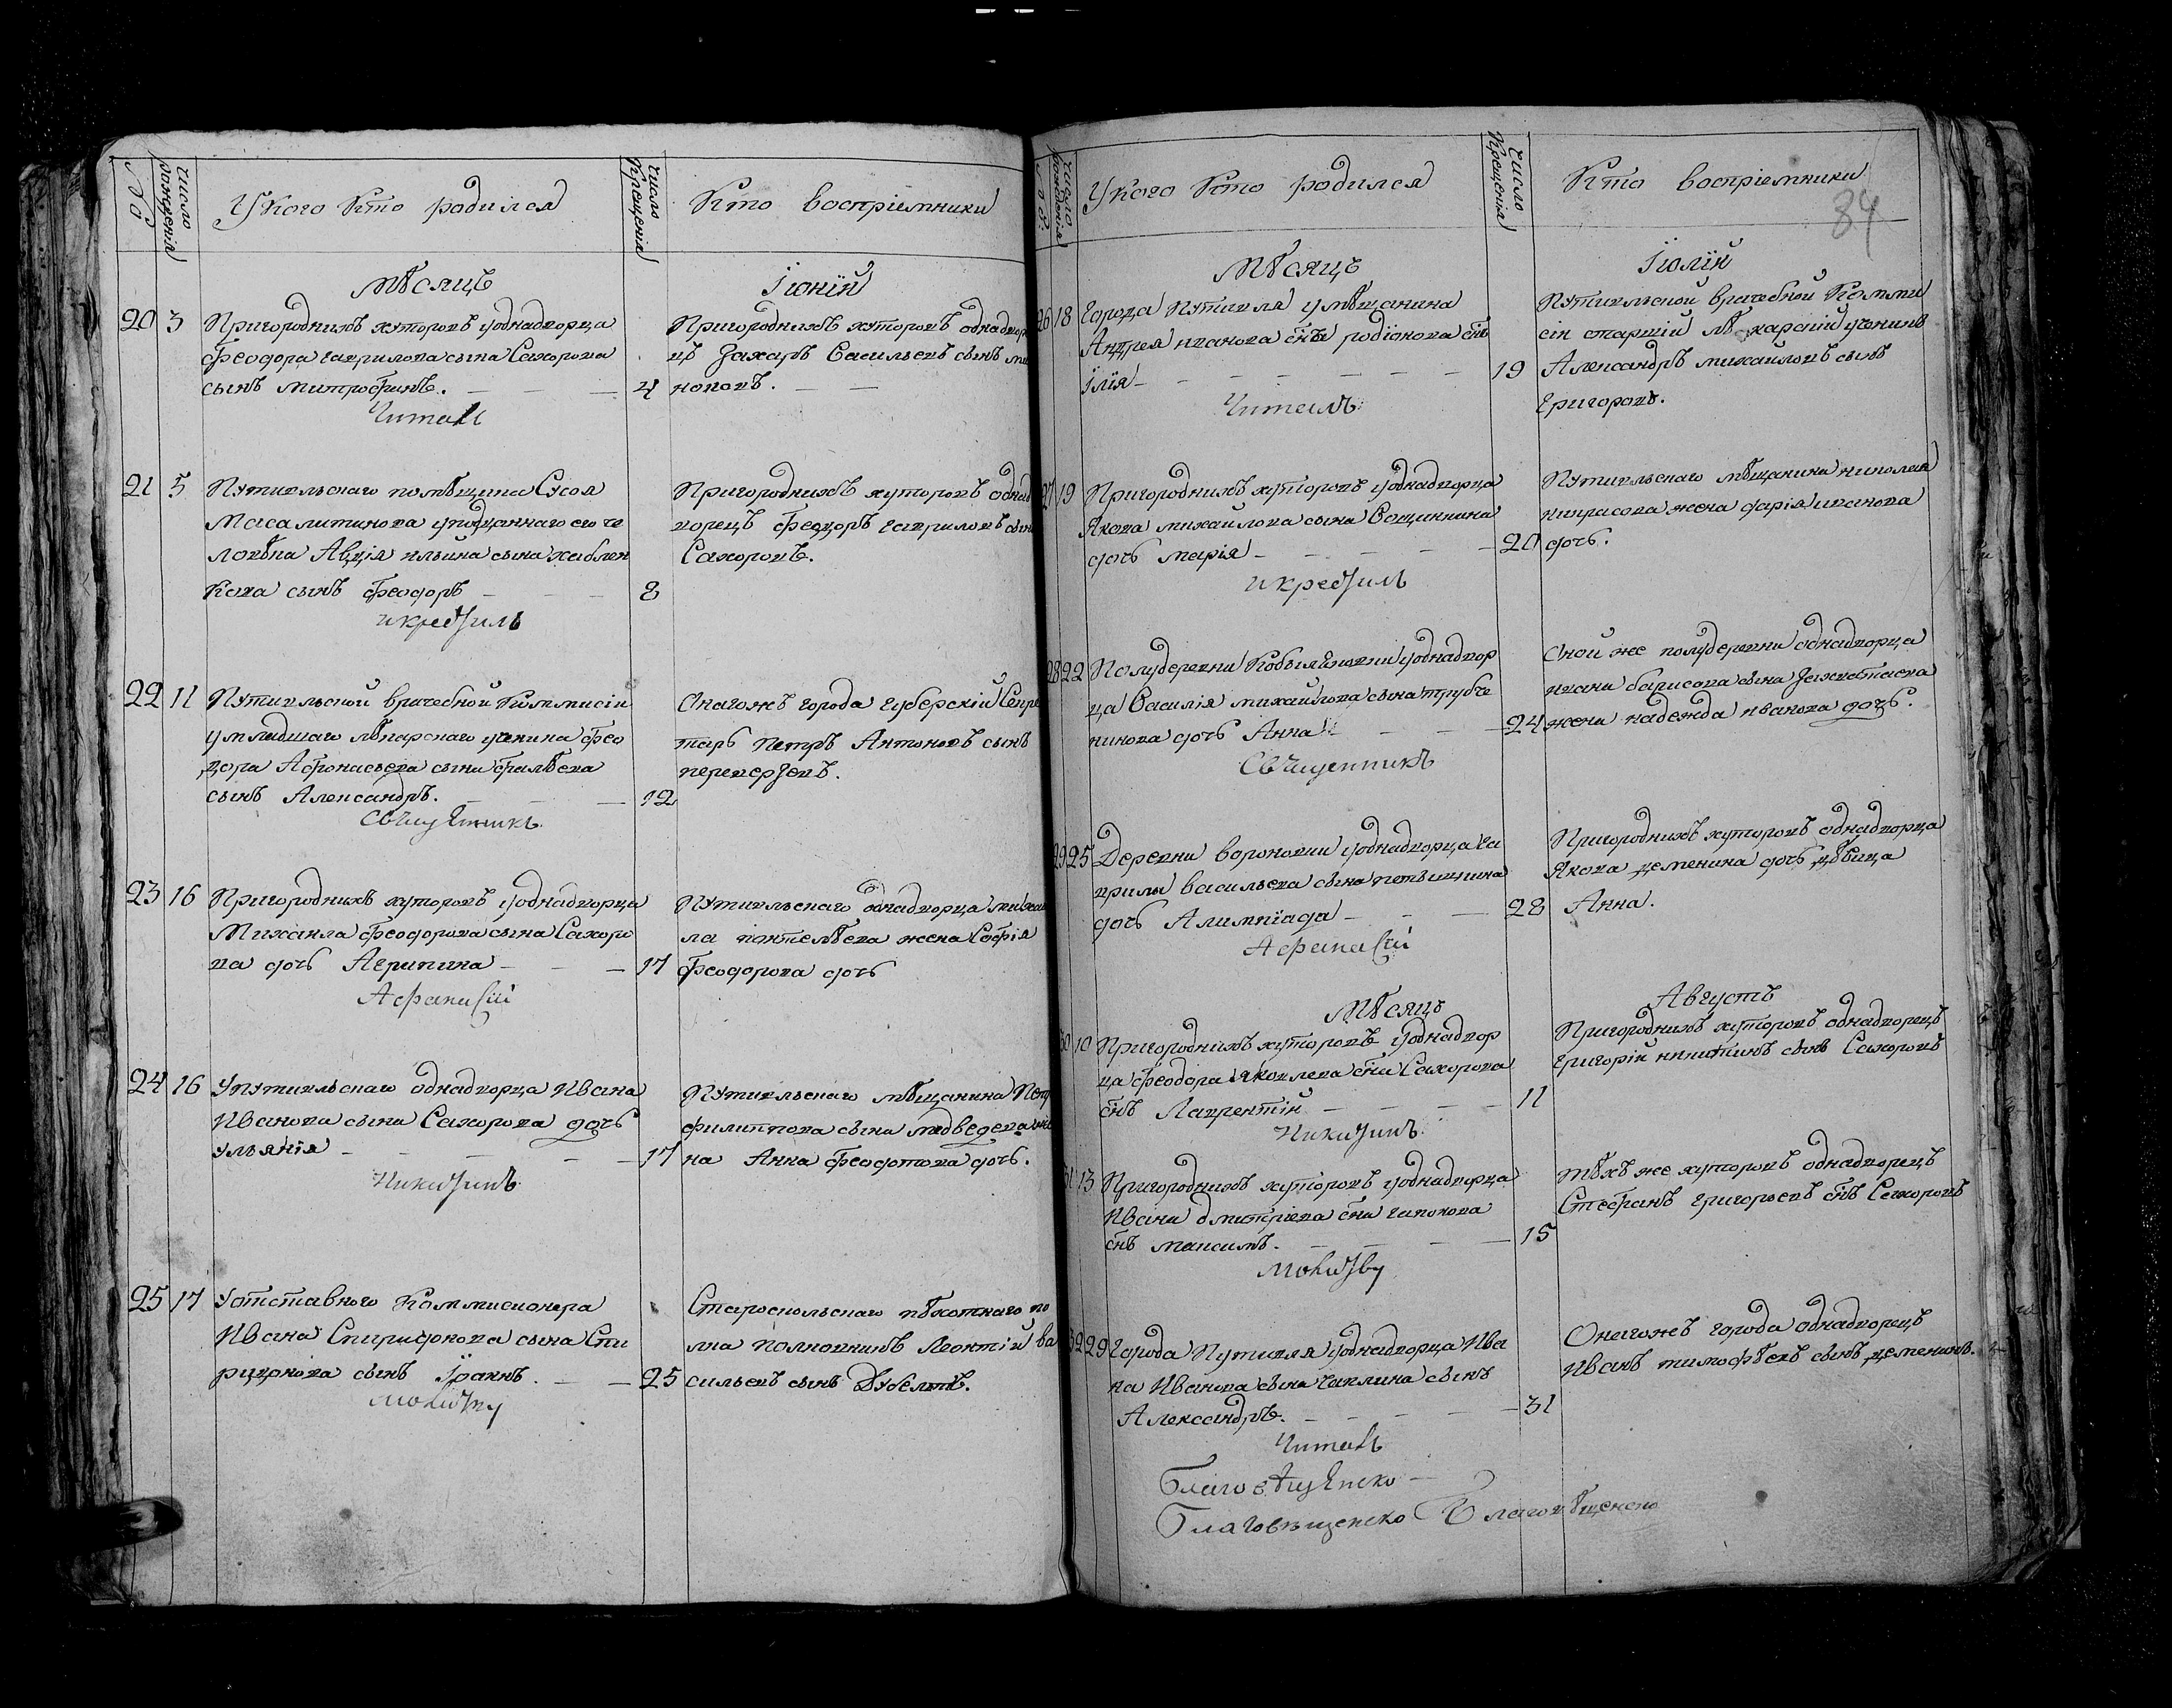 №
число рожденія
У Кого Кто родился
число Крещенія
Кто воспріемники
Мѣсяцъ
Іюній
20 3 Пригороднихъ хуторовъ уоднадворца
Феодора Гаврилова сына Сахорова
сынъ Митрофанъ. 4
Читалъ
Пригороднихъ хуторовъ однадвор
цъ Захаръ Васильевъ сынъ
ноповъ.
21 5 Путивльскаго помѣщика Сусоя
Масалитинова уподданнаго его че
ловѣка Авдія ильина сына
кова сынъ Феодоръ 8
и крестилъ
Пригороднихъ хуторовъ однад
ворецъ Феодоръ Гавриловъ сынъ
Сахоровъ.
22 11 Путивльской врачебной Коммисіи
умладшаго лѣкарскаго ученика Фео
дора Афонасьева сына
сынъ Александръ. 12
Священникъ
Онагожъ города губерскій Секре
тарь Петръ Антоновъ сынъ
переверзевъ.
23 16 Пригороднихъ хуторовъ уоднадворца
Михаила Феодорова сына Сахоро
ва дочь Агрипина 17
Афанасій
Путивльскаго однадворца михаи
ла пантелѣева жена Софія
Феодорова дочь
24 16 Упутивльскаго однадворца Ивана
Иванова сына Сахорова дочь
Ульянія 17
Никитинъ
Путивльскаго мѣщанина Петр
филиппова сына медведева же
на Анна Феодотова дочь.
25 17 Уотставного Коммисионера
Ивана Спиридонова сына Спи
ридонова сынъ Іоаннъ. 25
молитву
Староскольскаго пѣхотнаго по
лка полковникъ Леонтій ва
сильевъ сынъ Дубельтъ.
число рожденія
У Кого Кто родился
число Крещенія
Кто воспріемники
84
Мѣсяцъ
Іюлій
26 18 Города Путивля умѣщанина
Андрея иванова сна родіонова снъ
Ілія 19
Читалъ
Путивльской врачебной Комми
сіи старшій лѣкарскій ученикъ
Александръ михайловъ сынъ
Григоровъ.
27 19 Пригороднихъ хуторовъ уоднадворца
Якова михайлова сына Вощинина
дочь марія 20
и крестилъ
Путивльскаго мѣщанина николая
никрасова жена дарія иванова
дочь.
28 22 Полудеревни уоднадвор
ца Василія михайлова сына трубче
нинова дочь Анна 24
Священникъ
Оной же полудеревни однадворца
ивана барисова сына
жена надежда иванова дочь.
29 25 Деревни вороновки уоднадворца га
врилы васильева сына
дочь Алимпіада 28
Афанасій
Пригороднихъ хуторовъ однадворца
Якова деменина дочь дѣвица
Анна.
Мѣсяцъ
Августъ
30 10 Пригороднихъ хуторовъ уоднадвор
ца Феодора яковлева сна Сахорова
снъ Лаврентій 11
Никитинъ
Пригороднихъ хуторовъ однадворецъ
Григорій никитинъ сынъ Сахоровъ
31 13 Пригороднихъ хуторовъ уоднадворца
Ивана дмитріева сна гапонова
снъ максимъ. 15
молитву
тѣхъ же хуторовъ однадворецъ
Стефанъ григорьевъ снъ Сахоровъ
32 29 Города Путивля уоднадворца Ива
на Иванова сына чаплина сынъ
Александръ. 31
Читалъ
Онагожъ города однадворецъ
Иванъ тимофѣевъ сынъ деменинъ.
Благовѣщенско
Благовещенско Благовѣщенско